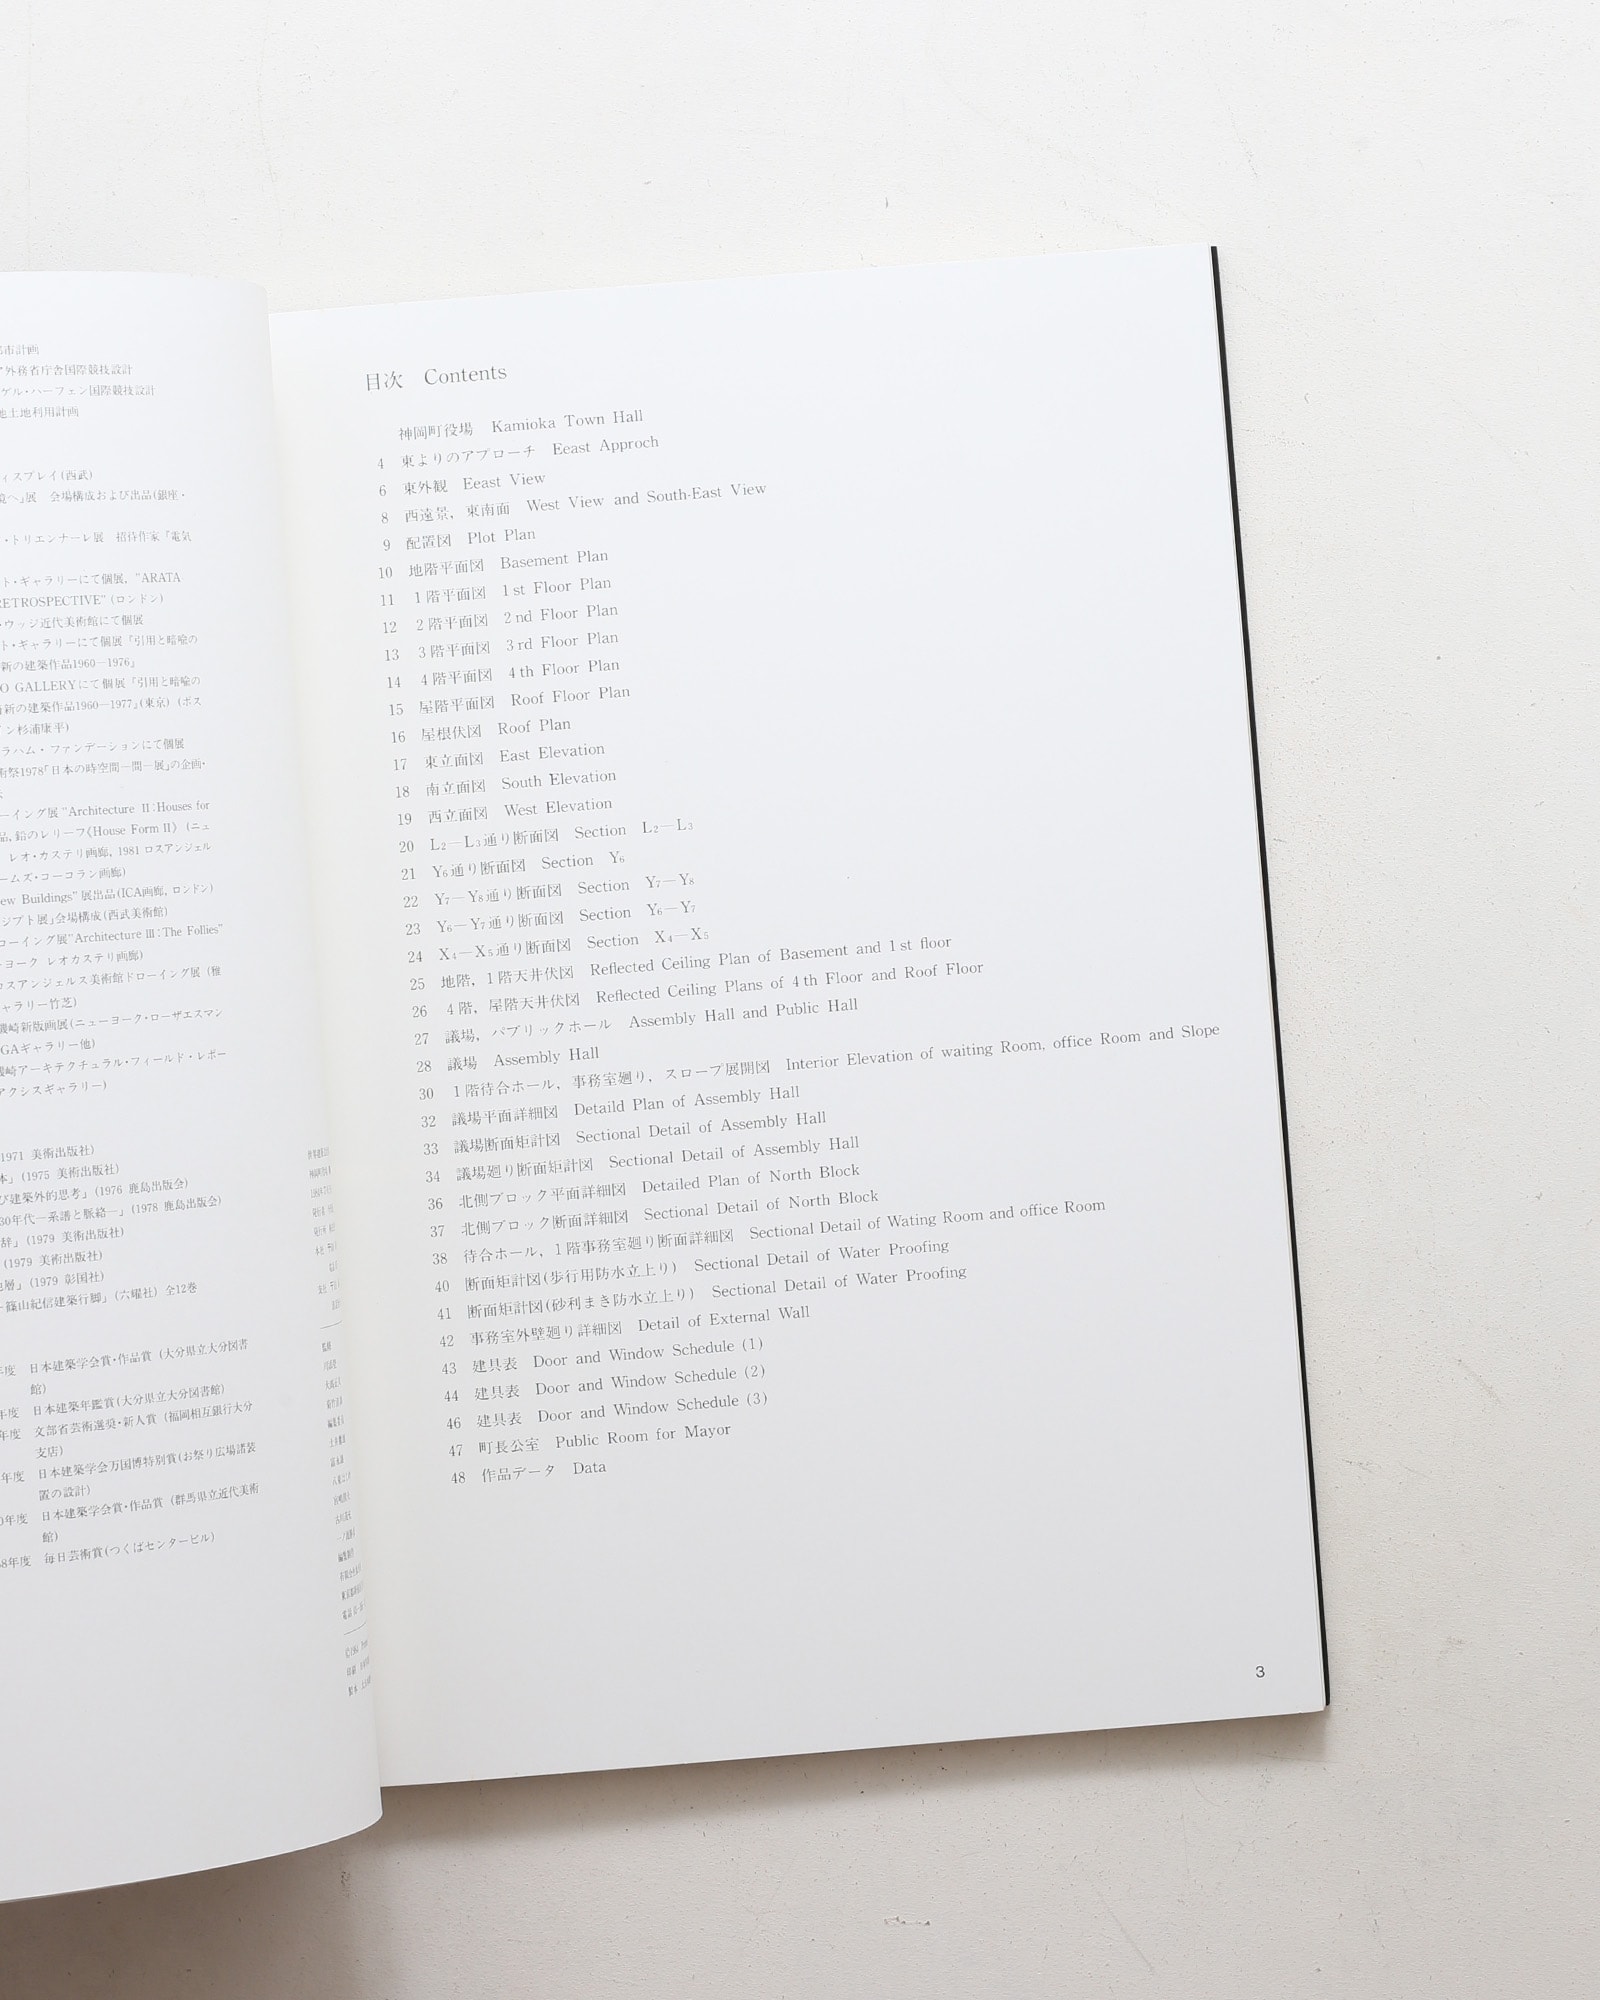 市計画
外務省庁舎国際競技設計
ゲル・ハーフェン国際競技設計
地土地利用計画
ィスプレイ(西武)
展 会場構成および出品(銀座・
・トリエンナーレ展 招待作家『電気
ト・ギャラリーにて個展, "ARATA
RETROSPECTIVE" (ロンドン)
・ウッジ近代美術館にて個展
ト・ギャラリーにて個展『引用と暗喩の
新の建築作品1960−1976』
O GALLERYにて個展『引用と暗喩の
新の建築作品1960—1977』(東京) (ポス
ン杉浦康平)
ラハム・ファンデーションにて個展
術祭1978「日本の時空間—間—展」の企画・
ーイング展 "Architecture II:Houses for
品, 鉛のレリーフ《House Form II》 (ニュ
レオ・カステリ画廊, 1981 ロスアンジェル
ームズ・コーコラン画廊)
ew Buildings" 展出品(ICA画廊, ロンドン)
ジプト展」会場構成(西武美術館)
ローイング展"Architecture III:The Follies"
ーヨーク レオカステリ画廊)
ロスアンジェルス美術館ドローイング展 (雅
ャラリー竹芝)
磯崎新版画展(ニューヨーク・ローザエスマン
GAギャラリー他)
磯崎アーキテクチュラル・フィールド・レポー
アクシスギャラリー)
1971 美術出版社)
本」(1975 美術出版社)
び建築外的思考」(1976 鹿島出版会)
30年代—系譜と脈絡—」(1978 鹿島出版会)
辞」(1979 美術出版社)
(1979 美術出版社)
層」(1979 彰国社)
篠山紀信建築行脚」(六耀社) 全12巻
年度 日本建築学会賞・作品賞 (大分県立大分図書
館)
年度 日本建築年鑑賞(大分県立大分図書館)
年度 文部省芸術選奨・新人賞 (福岡相互銀行大分
支店)
年度 日本建築学会万国博特別賞(お祭り広場諸装
置の設計)
0年度 日本建築学会賞・作品賞 (群馬県立近代美術
館)
58年度 毎日芸術賞(つくばセンタービル)
目次 Contents
神岡町役場 Kamioka Town Hall
4 東よりのアプローチ Eeast Approch
6 東外観 Eeast View
8 西遠景, 東南面 West View and South-East View
9 配置図 Plot Plan
10 地階平面図 Basement Plan
11 1階平面図 1st Floor Plan
12 2階平面図 2nd Floor Plan
13 3階平面図 3rd Floor Plan
14 4階平面図 4th Floor Plan
15 屋階平面図 Roof Floor Plan
16 屋根伏図 Roof Plan
17 東立面図 East Elevation
18 南立面図 South Elevation
19 西立面図 West Elevation
20 L2—L3通り断面図 Section L2—L3
21 Y6通り断面図 Section Y6
22 Y7—Y8通り断面図 Section Y7—Y8
23 Y6—Y7通り断面図 Section Y6—Y7
24 X4—X5通り断面図 Section X4—X5
25 地階, 1階天井伏図 Reflected Ceiling Plan of Basement and 1st floor
26 4階, 屋階天井伏図 Reflected Ceiling Plans of 4th Floor and Roof Floor
27 議場, パブリックホール Assembly Hall and Public Hall
28 議場 Assembly Hall
30 1階待合ホール, 事務室廻り, スロープ展開図 Interior Elevation of waiting Room, office Room and Slope
32 議場平面詳細図 Detaild Plan of Assembly Hall
33 議場断面矩計図 Sectional Detail of Assembly Hall
34 議場廻り断面矩計図 Sectional Detail of Assembly Hall
36 北側ブロック平面詳細図 Detailed Plan of North Block
37 北側ブロック断面詳細図 Sectional Detail of North Block
38 待合ホール, 1階事務室廻り断面詳細図 Sectional Detail of Wating Room and office Room
40 断面矩計図(歩行用防水立上り) Sectional Detail of Water Proofing
41 断面矩計図(砂利まき防水立上り) Sectional Detail of Water Proofing
42 事務室外壁廻り詳細図 Detail of External Wall
43 建具表 Door and Window Schedule (1)
44 建具表 Door and Window Schedule (2)
46 建具表 Door and Window Schedule (3)
47 町長公室 Public Room for Mayor
48 作品データ Data
3